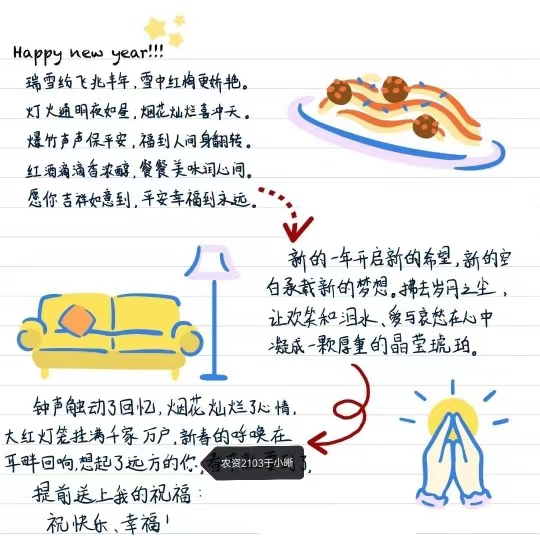 Happy new year!!!
瑞雪纷飞兆丰年,雪中红梅更娇艳。
灯火通明夜如昼,烟花灿烂喜冲天。
爆竹声声保平安,福到人间身翻转。
红酒滴滴香浓醇,餐餐美味润心间。
愿你吉祥如意到,平安幸福到永远。
新的一年开启新的希望,新的空
白承载新的梦想。拂去岁月之尘,
让欢笑和泪水、爱与哀愁在心中
凝成一颗厚重的晶莹琥珀。
钟声触动了回忆,烟花灿烂了心情,
大红灯笼挂满千家万户,新春的呼唤在
耳畔回响,想起了远方的你,春节
了,
农资2103于小晰
提前送上我的祝福:
祝快乐、幸福!